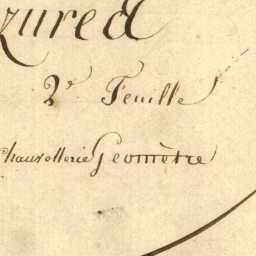 zured
2e Feuille
Chausellerie Geomètre